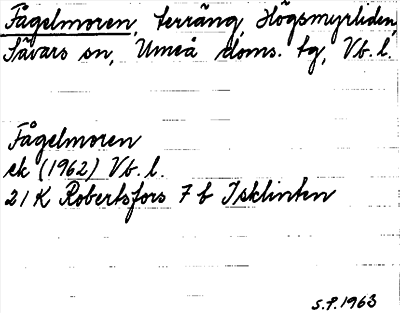 Fågelmoren, terräng, Högsmyrliden,
Sävars sn, Umeå doms. tg, Vb. l.
Fågelmoren
ek (1962) Vb. l.
21 K Robertsfors 7 b Isklinten
S.P. 1963